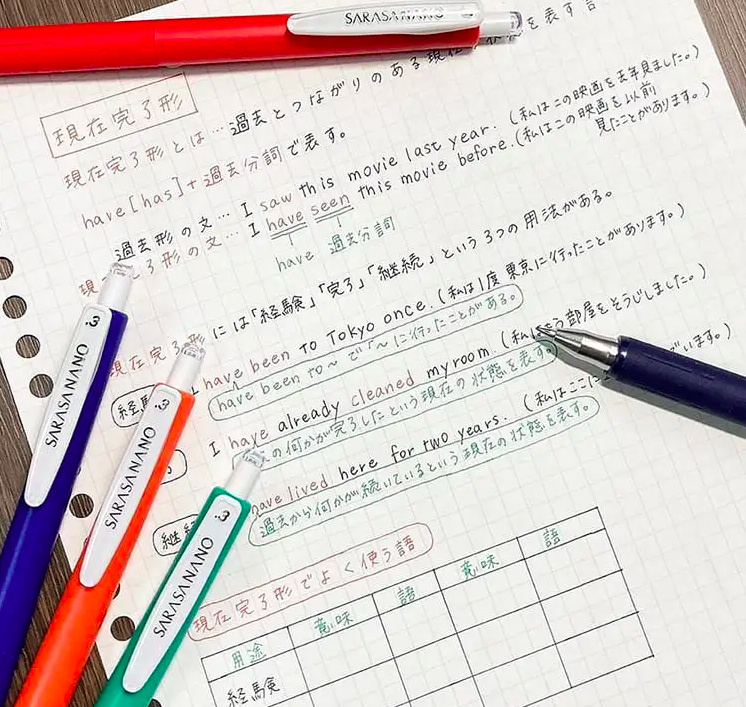 SARASA NANO
現在完了形
現在完了形とは…過去とつながりのある現在 を表す
have[has]+過去分詞で表す。
過去形の文… I saw this movie last year. (私はこの映画を去年見ました。)
現 了形の文… I have seen this movie before. (私はこの映画を以前
見たことがあります。)
have 過去分詞
現在完了形には「経験」「完了」「継続」という3つの用法がある。
経験 have been to Tokyo once. (私は1度東京に行ったことがあります。)
have been to~で「~に行ったことがある。
I have already cleaned my room. (私は 部屋をそうじしました。)
の何かが完了したという現在の状態を表す。
have lived here for two years. (私はここに います。)
継続
過去から何かが続いているという現在の状態を表す。
現在完了形でよく使う語
用途 意味 語 意味 語
経験
SARASA NANO
0.3
SARASA NANO
0.3
SARASA NANO
0.3